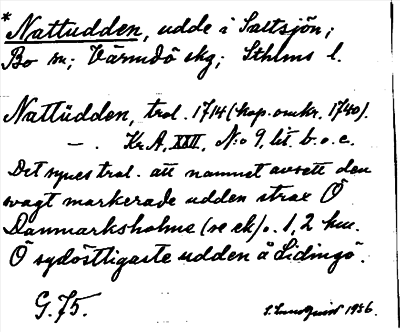 * Nattudden, udde i Saltsjön;
Bo sn; Värmdö skg; Sthlms l.
Nattüdden, trol. 1714 (kop. omkr. 1740).
— . Kr. A, XXII, N:o 9, lit. b. o. c.
Det synes trol. att namnet avsett den
svagt markerade udden strax Ö
Danmarksholme (se ek) o. 1,2 km.
Ö sydöstligaste udden å Lidingö.
G. 75. S. Lundquist 1936.